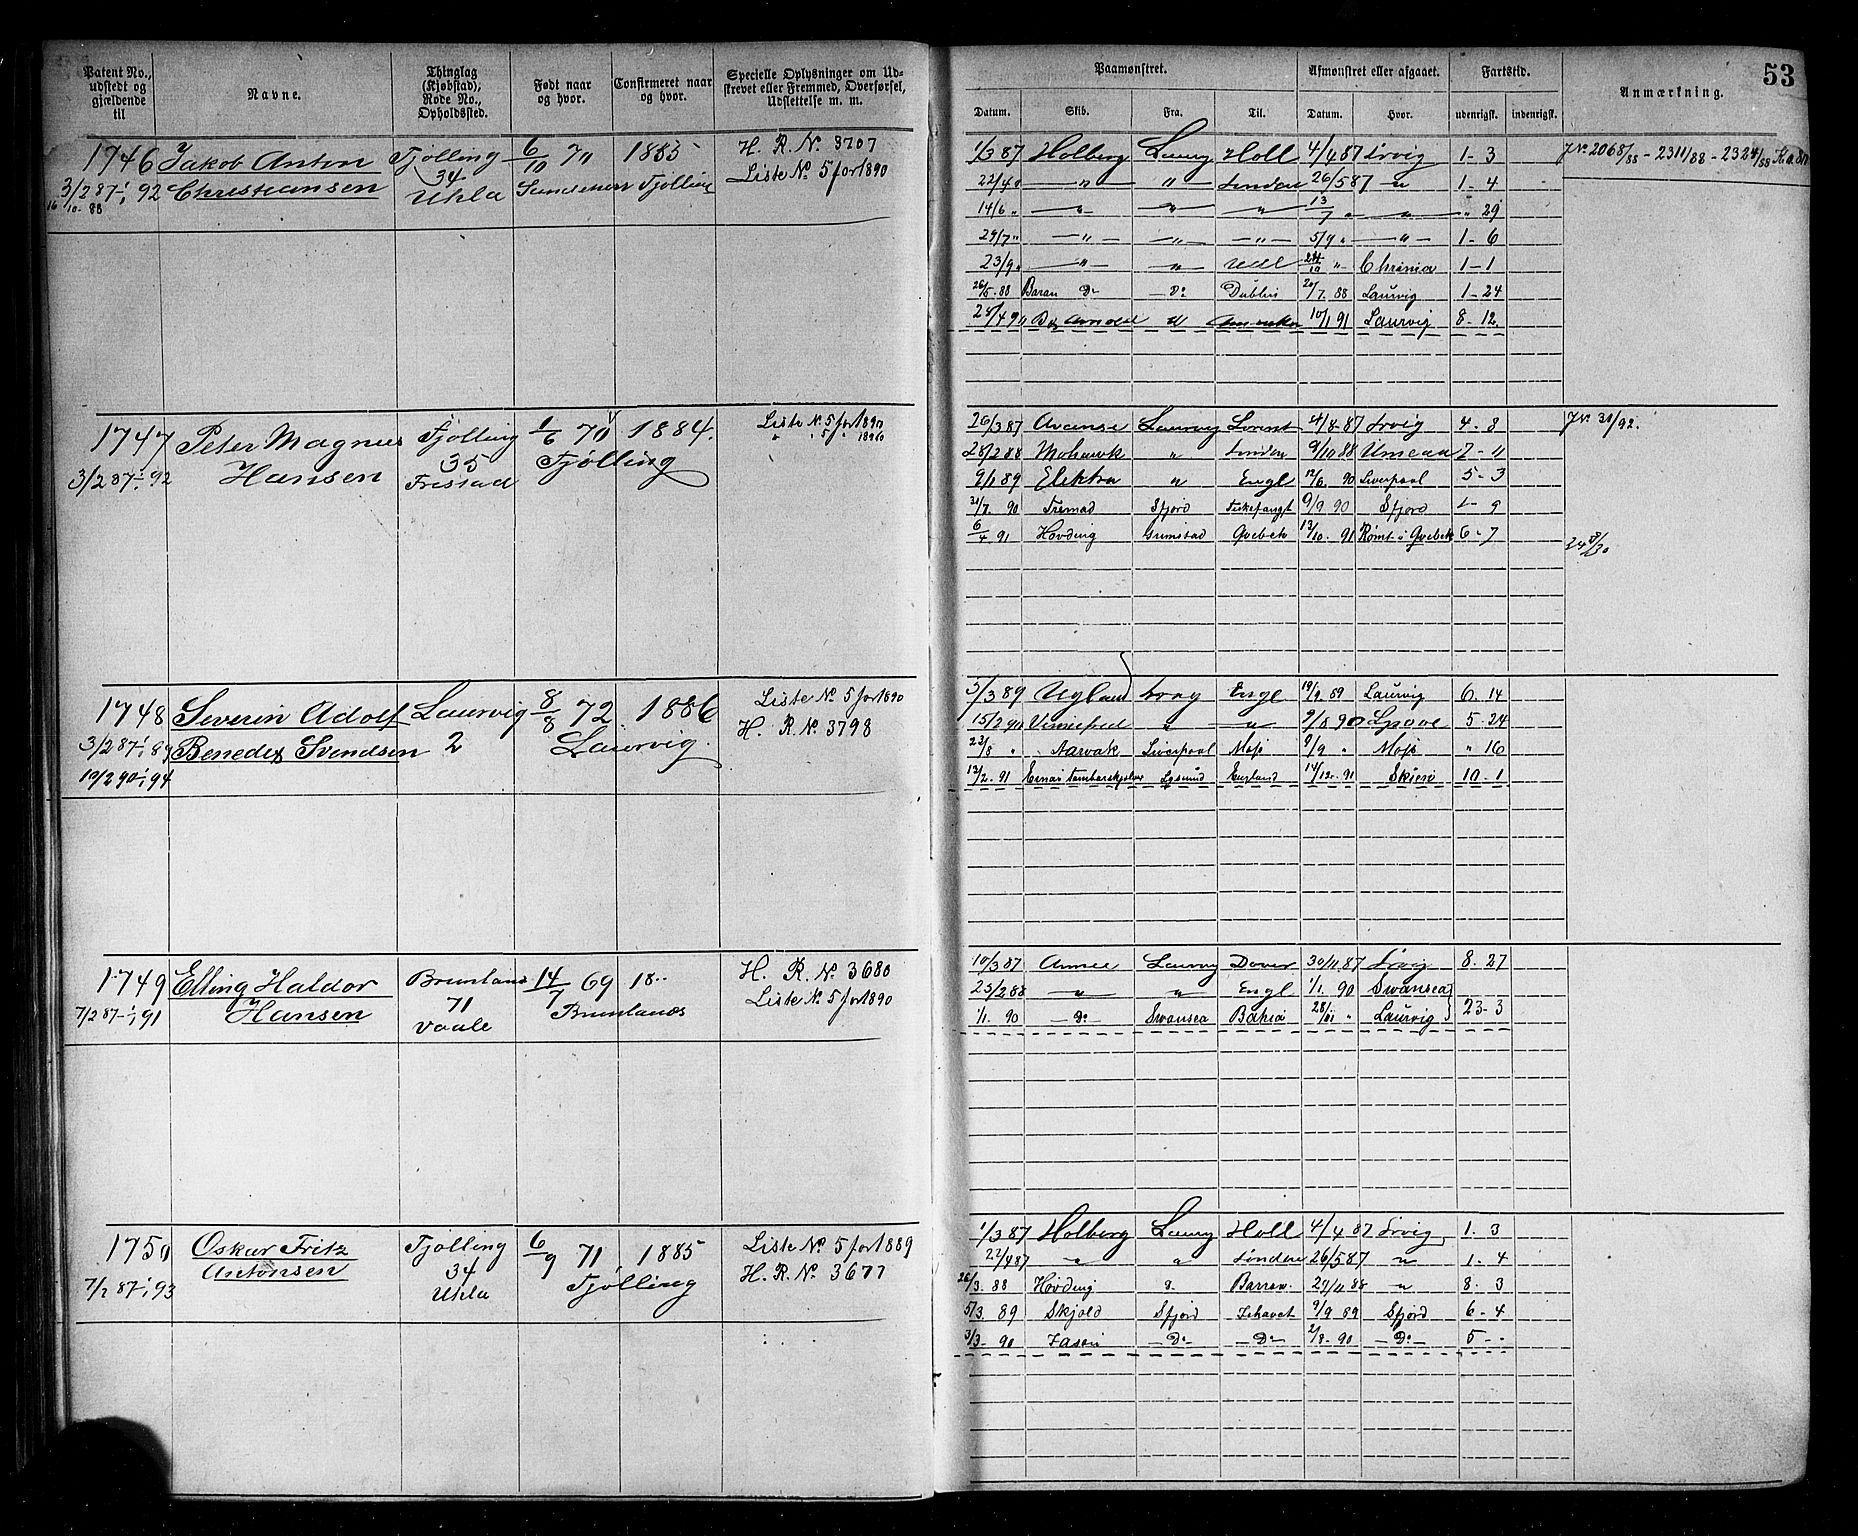 53
Patent No., udstedt og gjældende til
Navne.
Thinglag (Kjøbstad), Rode No., Opholdssted.
Født naar og hvor.
Confirmeret naar og hvor.
Specielle Oplysninger om Udskrevet eller Fremmed, Overførsel, Udslettelse m. m.
Paamønstret.
Afmønstret eller afgaaet.
Fartstid.
Anmærkning.
Datum. Skib. Fra. Til. Datum. Hvor. udenrigsk. indenrigsk.
1746 Jakob Anton Tjølling 6/10 70 1885 H. R. No. 3707
3/2 87 - 1/1 92 Christiansen 34 Tjølling Liste No. 5 for 1890
16/10 88 Ukla
1/3 87 Holberg Laurv Holl 4/4 87 Lrvig 1 - 3
22/4 " " " London 26/5 87 " 1 - 4
14/6 " " " " 13/7 " " " 29
29/7 " " " " 5/9 " " 1 - 6
23/9 " " " 24/10 " Chrania 1 - 1
26/5. 88 Do Do Dublin 20/7. 88 Laurvig 1 - 24
Arndal 10/1 91 Laurvig 8 - 12
J No. 2068/88 - 2311/88 - 2324/88
1747 Peter Magnus Tjølling 1/6 70 1884. Liste No. 5 for 1890
3/2 87 - 1/1 92 Hansen 35 Tjølling " " 5 " 1890
Frestad
26/3 87 Avanse Laurvig 4/8 87 Lrvig 4 - 8 J No. 31/92.
28/2 88 Mohawk " London 9/10 88 Umeaa 7 - 11
9/1 89 Elektra " Engl 12/6. 90 Liverpool 5 - 3
31/7. 90 Sfjord 9/9 90 Sfjord 1 - 9
6/4 91 Hovding Grimstad Qvebek 13/10. 91 Rømt i Qvebek 6 - 7
1748 Severin Adolf Laurvig 8/8 72. 1886 Liste No. 5 for 1890
3/2 87 - 1/1 89 Benedix Svendsen 2 Laurvig. H. R. No. 3798
19/2 90 - 1/1 94
5/3 89 Ugland Engl 19/9. 89 Laurvig 6. 14
15/2 90 " " 9/8 90 5 - 24
23/8 " Aarvak Liverpool Moss 9/9 " Moss " 16
12/2. 91 England 14/12. 91 Skien 10 - 1
1749 Elling Haldor Brunlanæs 14/7 69 18.. H. R. No. 3680
7/2 87 - 1/1 91 Hansen 71 Brunlanæs Liste No. 5 for 1890
Vaale
10/3 87 Laurvig Dover 30/11 87 Lrvig 8. 27
25/2 88 " " Engl 1/1. 90 Swansea
1/1. 90 Do Swansea Bahia 28/11 " Laurvig 23 - 3
1750 Oskar Fritz Tjølling 6/9 71 1885 Liste No. 5 for 1889
7/2 87 - 1/1 93 Antonsen 34 Tjølling H. R. No. 3677
Ukla
1/3 87 Holberg Laurv Holl 4/4 87 Lrvig 1. 3
22/4 87 " " London 26/5 87 " 1 - 4
26/3. 88 Hovding 24/11 88 " 8 - 3
5/3. 89 Skjold Sfjord Ishavet 9/9 89 Sfjord 6 - 4
3/3 - 90 Jason Do Do 2/8 - 90 Do 5 - -